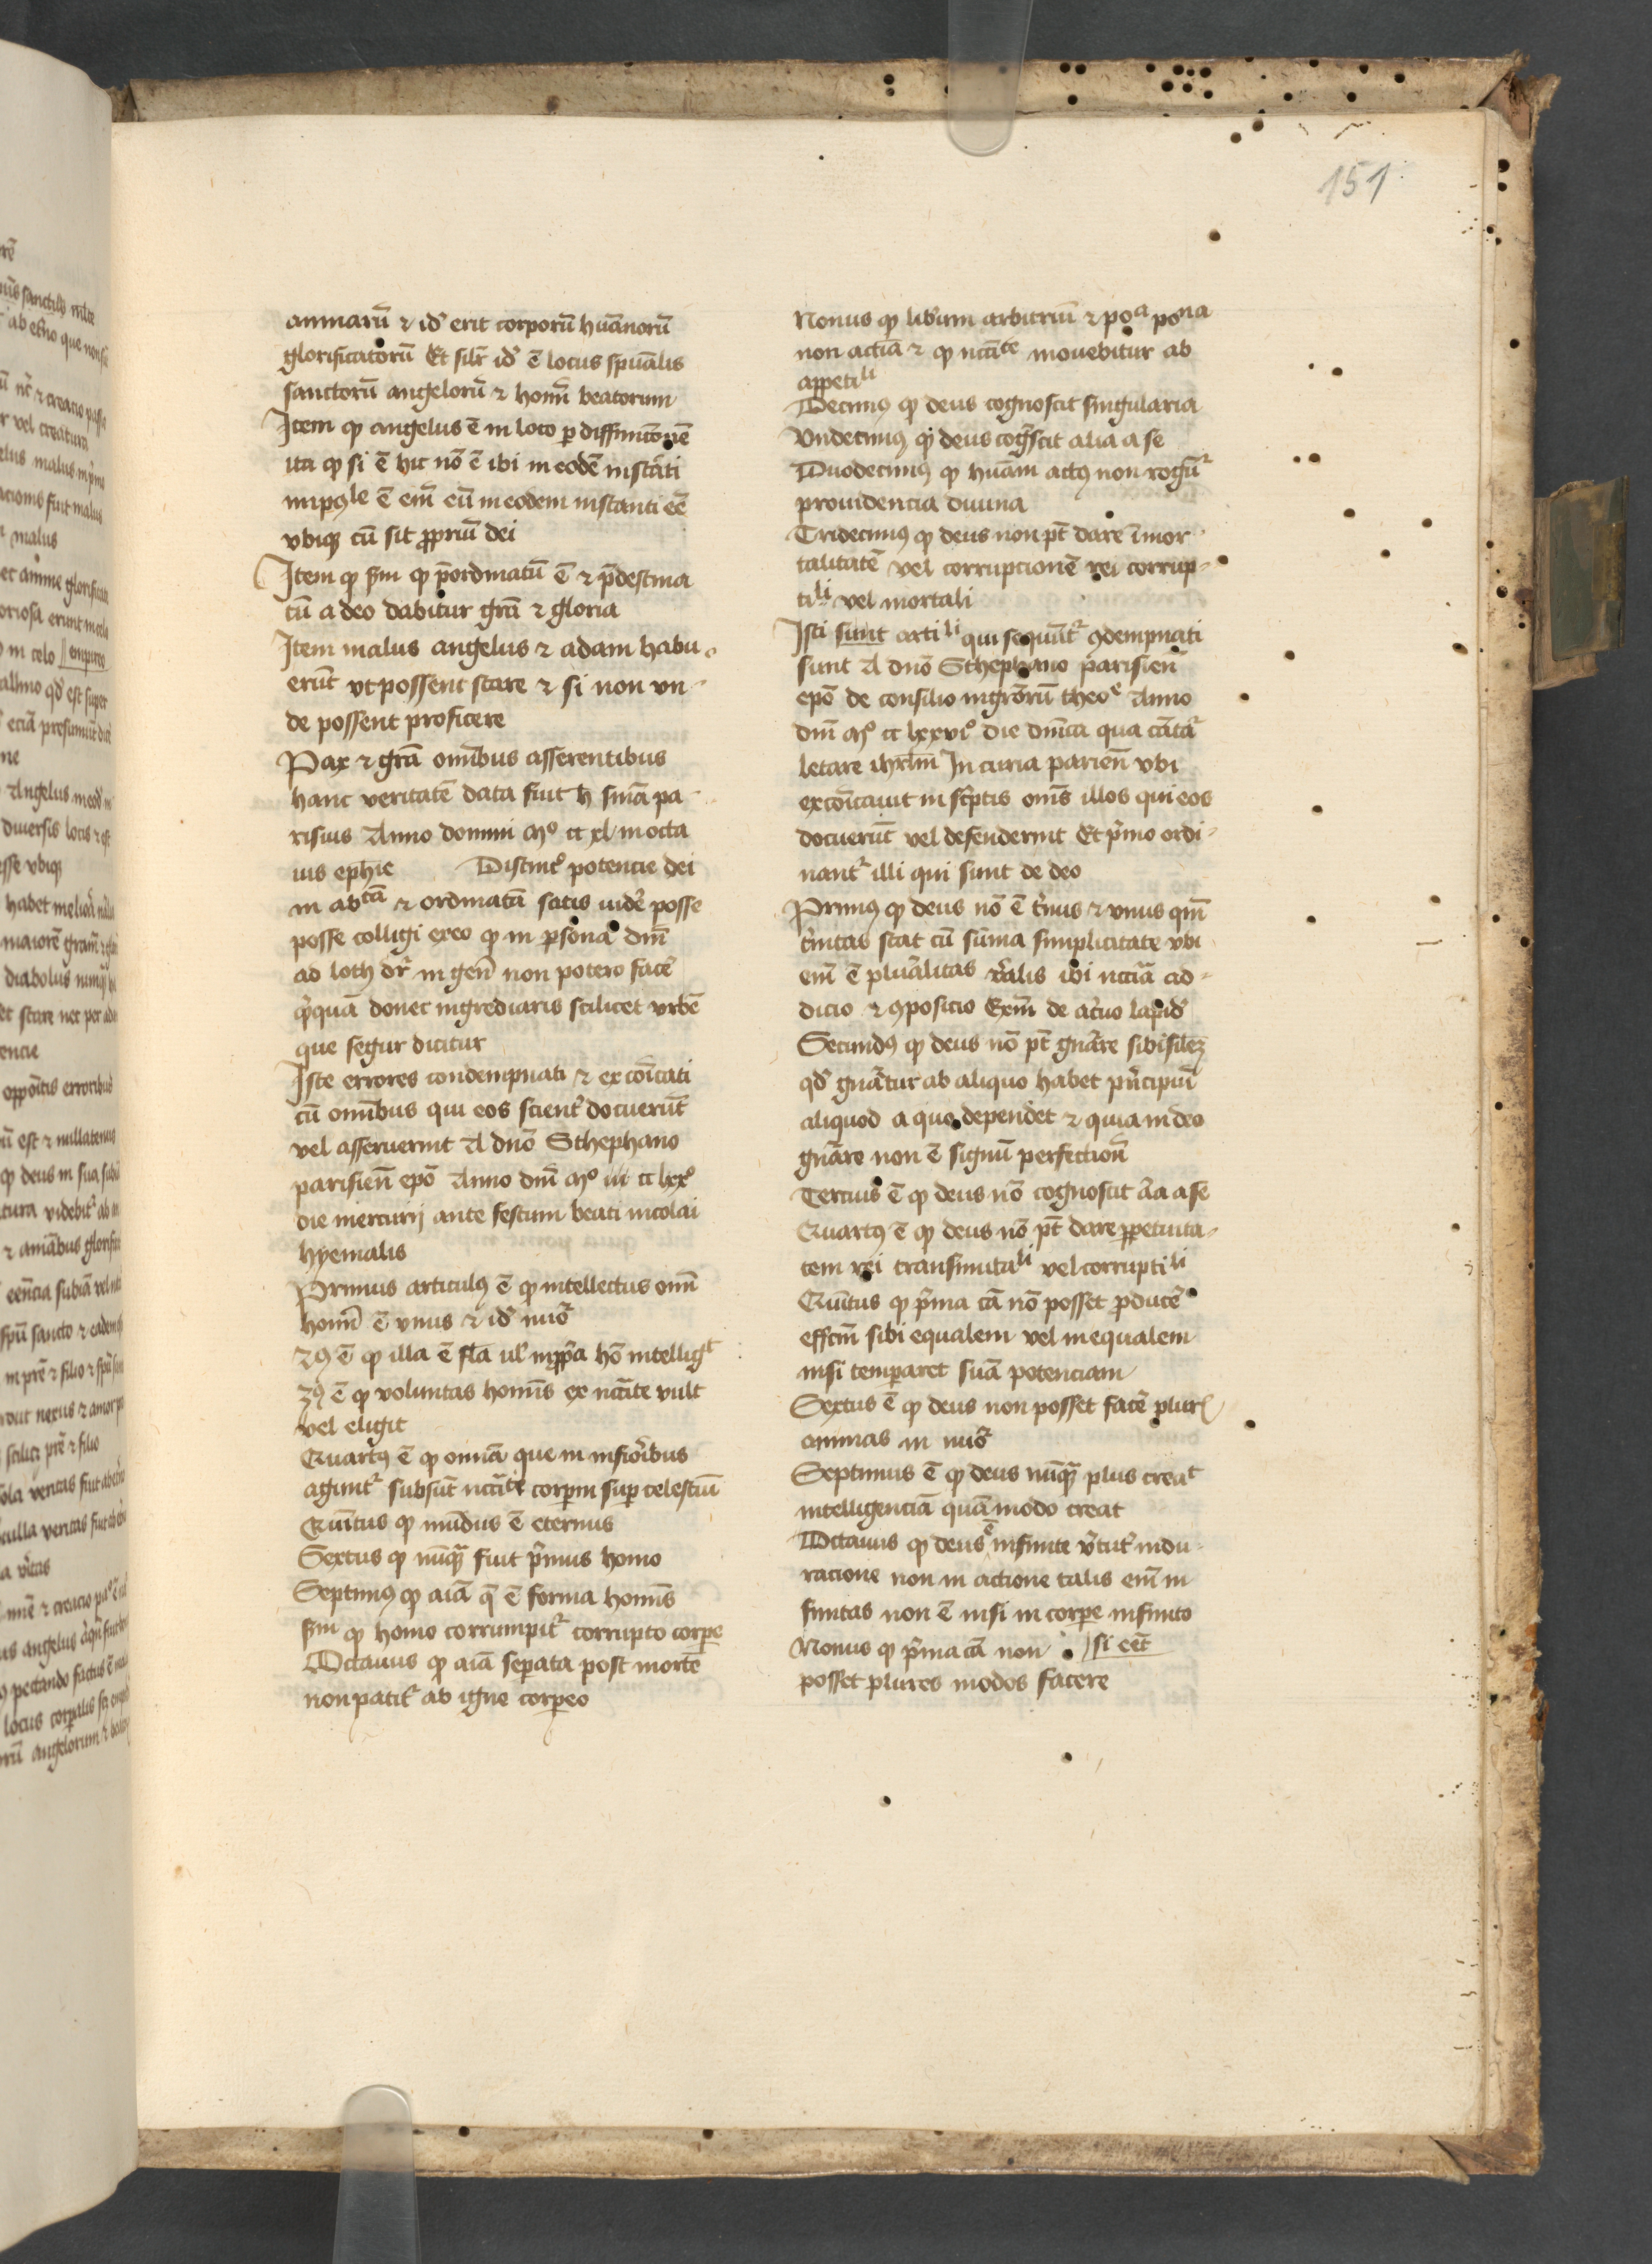 151
animarū ⁊ idē erit corporū huānorū
glorificatorū Et silr̄ idē ē locus spūalis
sanctorū angelorū ⁊ homī beatorum
Item ꝙ angelus ē in loco ꝑ diffinicōnē
ita ꝙ si ē hic nō ē ibi in eodē instāti
imp̄oˡᵉ ē em̄ eū in eodem instanti eē
vbiqꝫ cū sit ꝓpriū dei
Item ꝙ ẜm ꝙ p̄ordinatū ē ⁊ p̄destina
tū a deo dabitur grā ⁊ gloria
Item malus angelus ⁊ adam habu
erūt vt possent stare ⁊ si non vn
de possent proficere
Pax ⁊ grā omībus asserentibus
hanc veritatē data fuit h̄ snīa pa
risius Anno domini mº cc xl in octa
uis ephie Distinctº potencie dei
in abᵗᵃᵐ ⁊ ordinatā satis uidet̄ posse
posse colligi ex eo ꝙ in ꝑsona dnī
ad loth dr̄ in gen̄ non potero facē
q̄quā donec ingrediaris scilicet vrbē
que segur dicitur
Iste errores condempnati ⁊ excōicati
cū omībus qui eos scient̄ docuerūt
vel asseruerint A dnō Sthephano
parisien̄ epō Anno dnī mº cc lxxº
die mercurij ante festum beati nicolai
hyemalis
Primus articulꝰ ē ꝙ intellectus omī
homī ē vnus ⁊ idē nūo
2ꝰ ē ꝙ illa ē fla ul' inꝓpa hō intelligᵗ
3ꝰ ē ꝙ voluntas homīs ex nccāte vult
vel eligit
Quartꝰ ē ꝙ omīa que in inferioribus
agunt̄ subsūt nccātⁱ corpm suꝑ celestiū
Quītus ꝙ mūdus ē eternus
Sextus ꝙ nūqꝫ fuit p̄mus homo
Septimꝰ ꝙ aīa q̄ ē forma homīs
ẜm ꝙ homo corrumpit̄ corrupto corpe
Octauus ꝙ aīa seꝑata post mortē
non patit̄ ab igne corꝑeo
Nonus ꝙ libum arbitriū ⁊ poᵃ poⁿᵃ
non actīa ⁊ ꝙ nccāᵗᵉ mouebitur ab
appetiˡⁱ
Decimꝰ ꝙ deus cognoscit singularia
Vndecimꝰ ꝙ deus coḡscit alia a se
Duodecimꝰ ꝙ huām actꝰ non regūt̄
prouidencia diuina
Tridecimꝰ ꝙ deus non pt̄ dare īmor
talitatē vel corrupcionē rei corrup
tiˡⁱ vel mortali
Isti sunt artiˡⁱ qui sequūt̄ ꝯdempnati
sunt A dnō Sthephano parisien̄
epō de consilio mgrōrū theoᵉ Anno
dnī mº cc lxxviº die dnīca qua cātat̄
letare ihrlm̄ In curia parien̄ vbi
excōicauit in sc̄ptis oms̄ illos qui eos
docuerūt vel defenderint Et p̄mo ordi
nant̄ illi qui sunt de deo
Primꝰ ꝙ deus nō ē t̄nus ⁊ vnus qm̄
t̄nitas stat cū sūma simplicitate vbi
em̄ ē pluralitas r̄alis ibi nccīa ad
dicio ⁊ ꝯposicio Exm̄ de ac̄uo lapidū
Secundꝰ ꝙ deus nō pt̄ gnāre sibi silē
qd̄ gnātur ab aliquo habet p̄ncipiū
aliquod a quo dependet ⁊ quia in deo
gnāre non ē signū perfectionī
Tercius ē ꝙ deus nō cognoscit āa a se
Quartꝰ ē ꝙ deus nō pt̄ dare ꝑpetuita
tem rei transmutaˡⁱ vel corruptiˡⁱ
Quītus ꝙ p̄ma cā nō posset ꝓducē
effcm̄ sibi equalem vel inequalem
nisi temperaret suā potenciam
Sextus ē ꝙ deus non posset facē plures
animas in nūo
Septimus ē ꝙ deus nūqꝫ plus creaᵗ
intelligenciā quā modo creat
Octauus ꝙ deus ē infinite v̄tut̄ in du
racione non in actione talis em̄ in
finitas non ē nisi in corꝑe infinito
Nonus ꝙ p̄ma cā non si eēt
posset plures modos facere